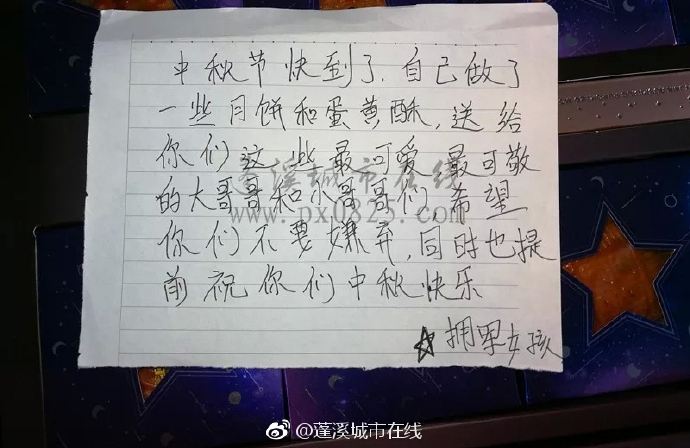 中秋节快到了，自己做了
一些月饼和蛋黄酥，送给
你们这些最可爱最可敬
的大哥哥和小哥哥们，希望
你们不要嫌弃，同时也提
前祝你们中秋快乐
☆拥军女孩
蓬溪城市在线
www.px0825.com
@蓬溪城市在线